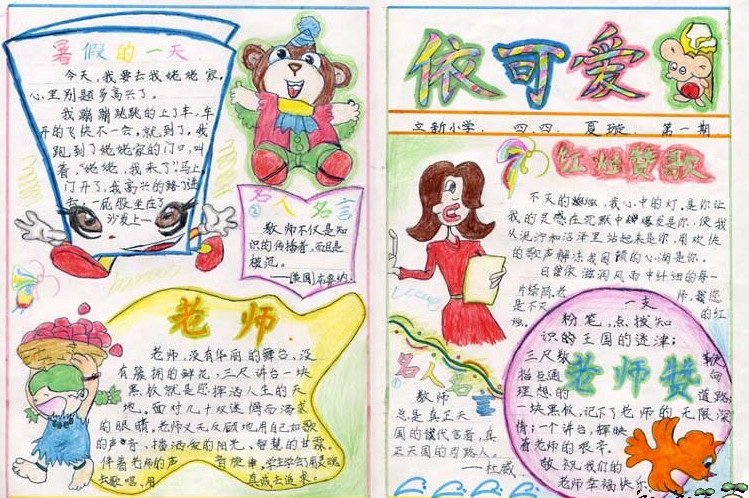 暑假的一天
今天,我要去我姥姥家,
心里别题多高兴了。
我蹦蹦跳跳的上了车,车
开的飞快不一会,就到了,我
跑到了姥姥家的门口,叫
着,“姥姥,我来了”,马上
门开了,我高兴的跨了进
去,一屁股坐在了
沙发上……
名人名言
②
教师不仅是知
识的传播者,而且是
模范。
——(美国)布鲁纳
老师
老师,没有华丽的舞台,没
有簇拥的鲜花,三尺讲台一块
黑板就是您挥洒人生的天
地。面对几十双迷惘而渴求
的眼睛,老师义无反顾地用自己如歌
的声音,播洒爱的阳光、智慧的甘霖。
伴着老师的声
去歌唱,用真诚去追求。
依可爱
立新小学 四、四 夏璇 第一期
红烛赞歌
不灭的,我心中的灯,是你让
我的灵感在沉默中爆发是你,使我
从泥泞和沼泽里站起来是你,用欢快
的歌声解冻我困顿的心湖是你。
日曾依滋润风雨中纤细的每一
片绿筒,老师,您
是不灭的红
烛。
名人名言
①
教师
总是真正天
国的代言者,真
正天国的引路人。
——杜威
老师赞
一支
粉笔,点拨知
识的王国的迷津;
三尺教鞭
指点通向
理想的道路;
一块黑板,记下了老师的无限深
情;一个讲台,辉映
着老师的艰辛。
敬祝我们的
老师幸福快乐